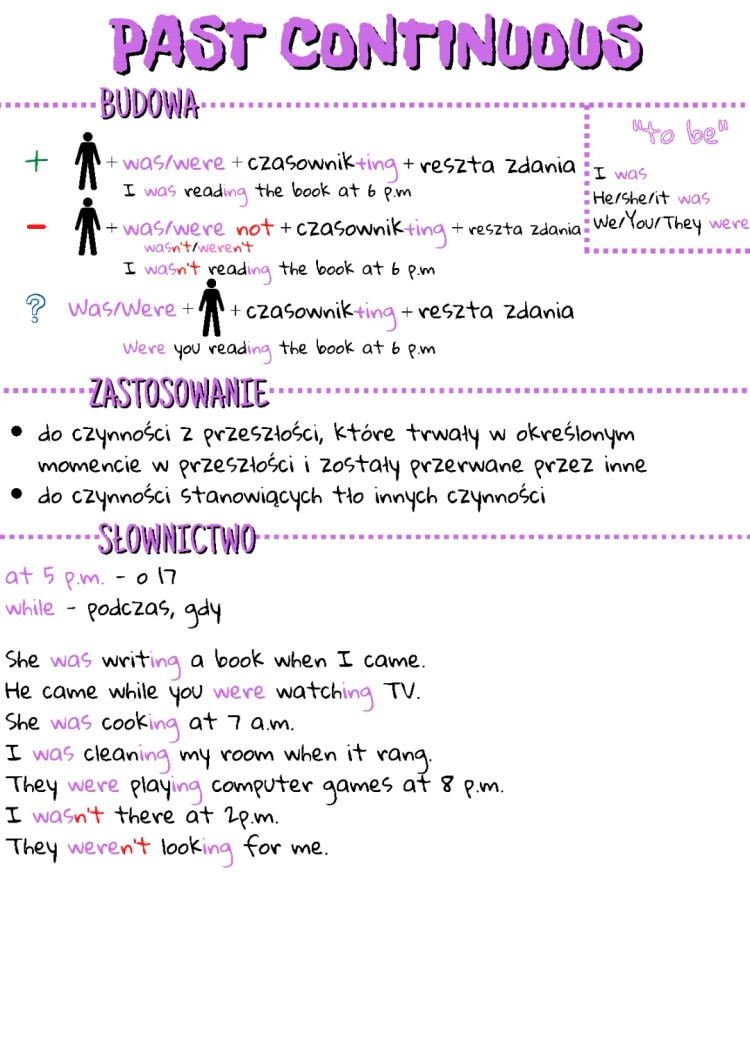 PAST CONTINUOUS
BUDOWA
"to be"
+ + was/were + czasownik+ing + reszta zdania
I was reading the book at 6 p.m
I was
He/she/it was
We/You/They were
- + was/were not + czasownik+ing + reszta zdania
wasn't/weren't
I wasn't reading the book at 6 p.m
? Was/Were + + czasownik+ing + reszta zdania
Were you reading the book at 6 p.m
ZASTOSOWANIE
• do czynności z przeszłości, które trwały w określonym
momencie w przeszłości i zostały przerwane przez inne
• do czynności stanowiących tło innych czynności
SŁOWNICTWO
at 5 p.m. - o 17
while - podczas, gdy
She was writing a book when I came.
He came while you were watching TV.
She was cooking at 7 a.m.
I was cleaning my room when it rang.
They were playing computer games at 8 p.m.
I wasn't there at 2p.m.
They weren't looking for me.